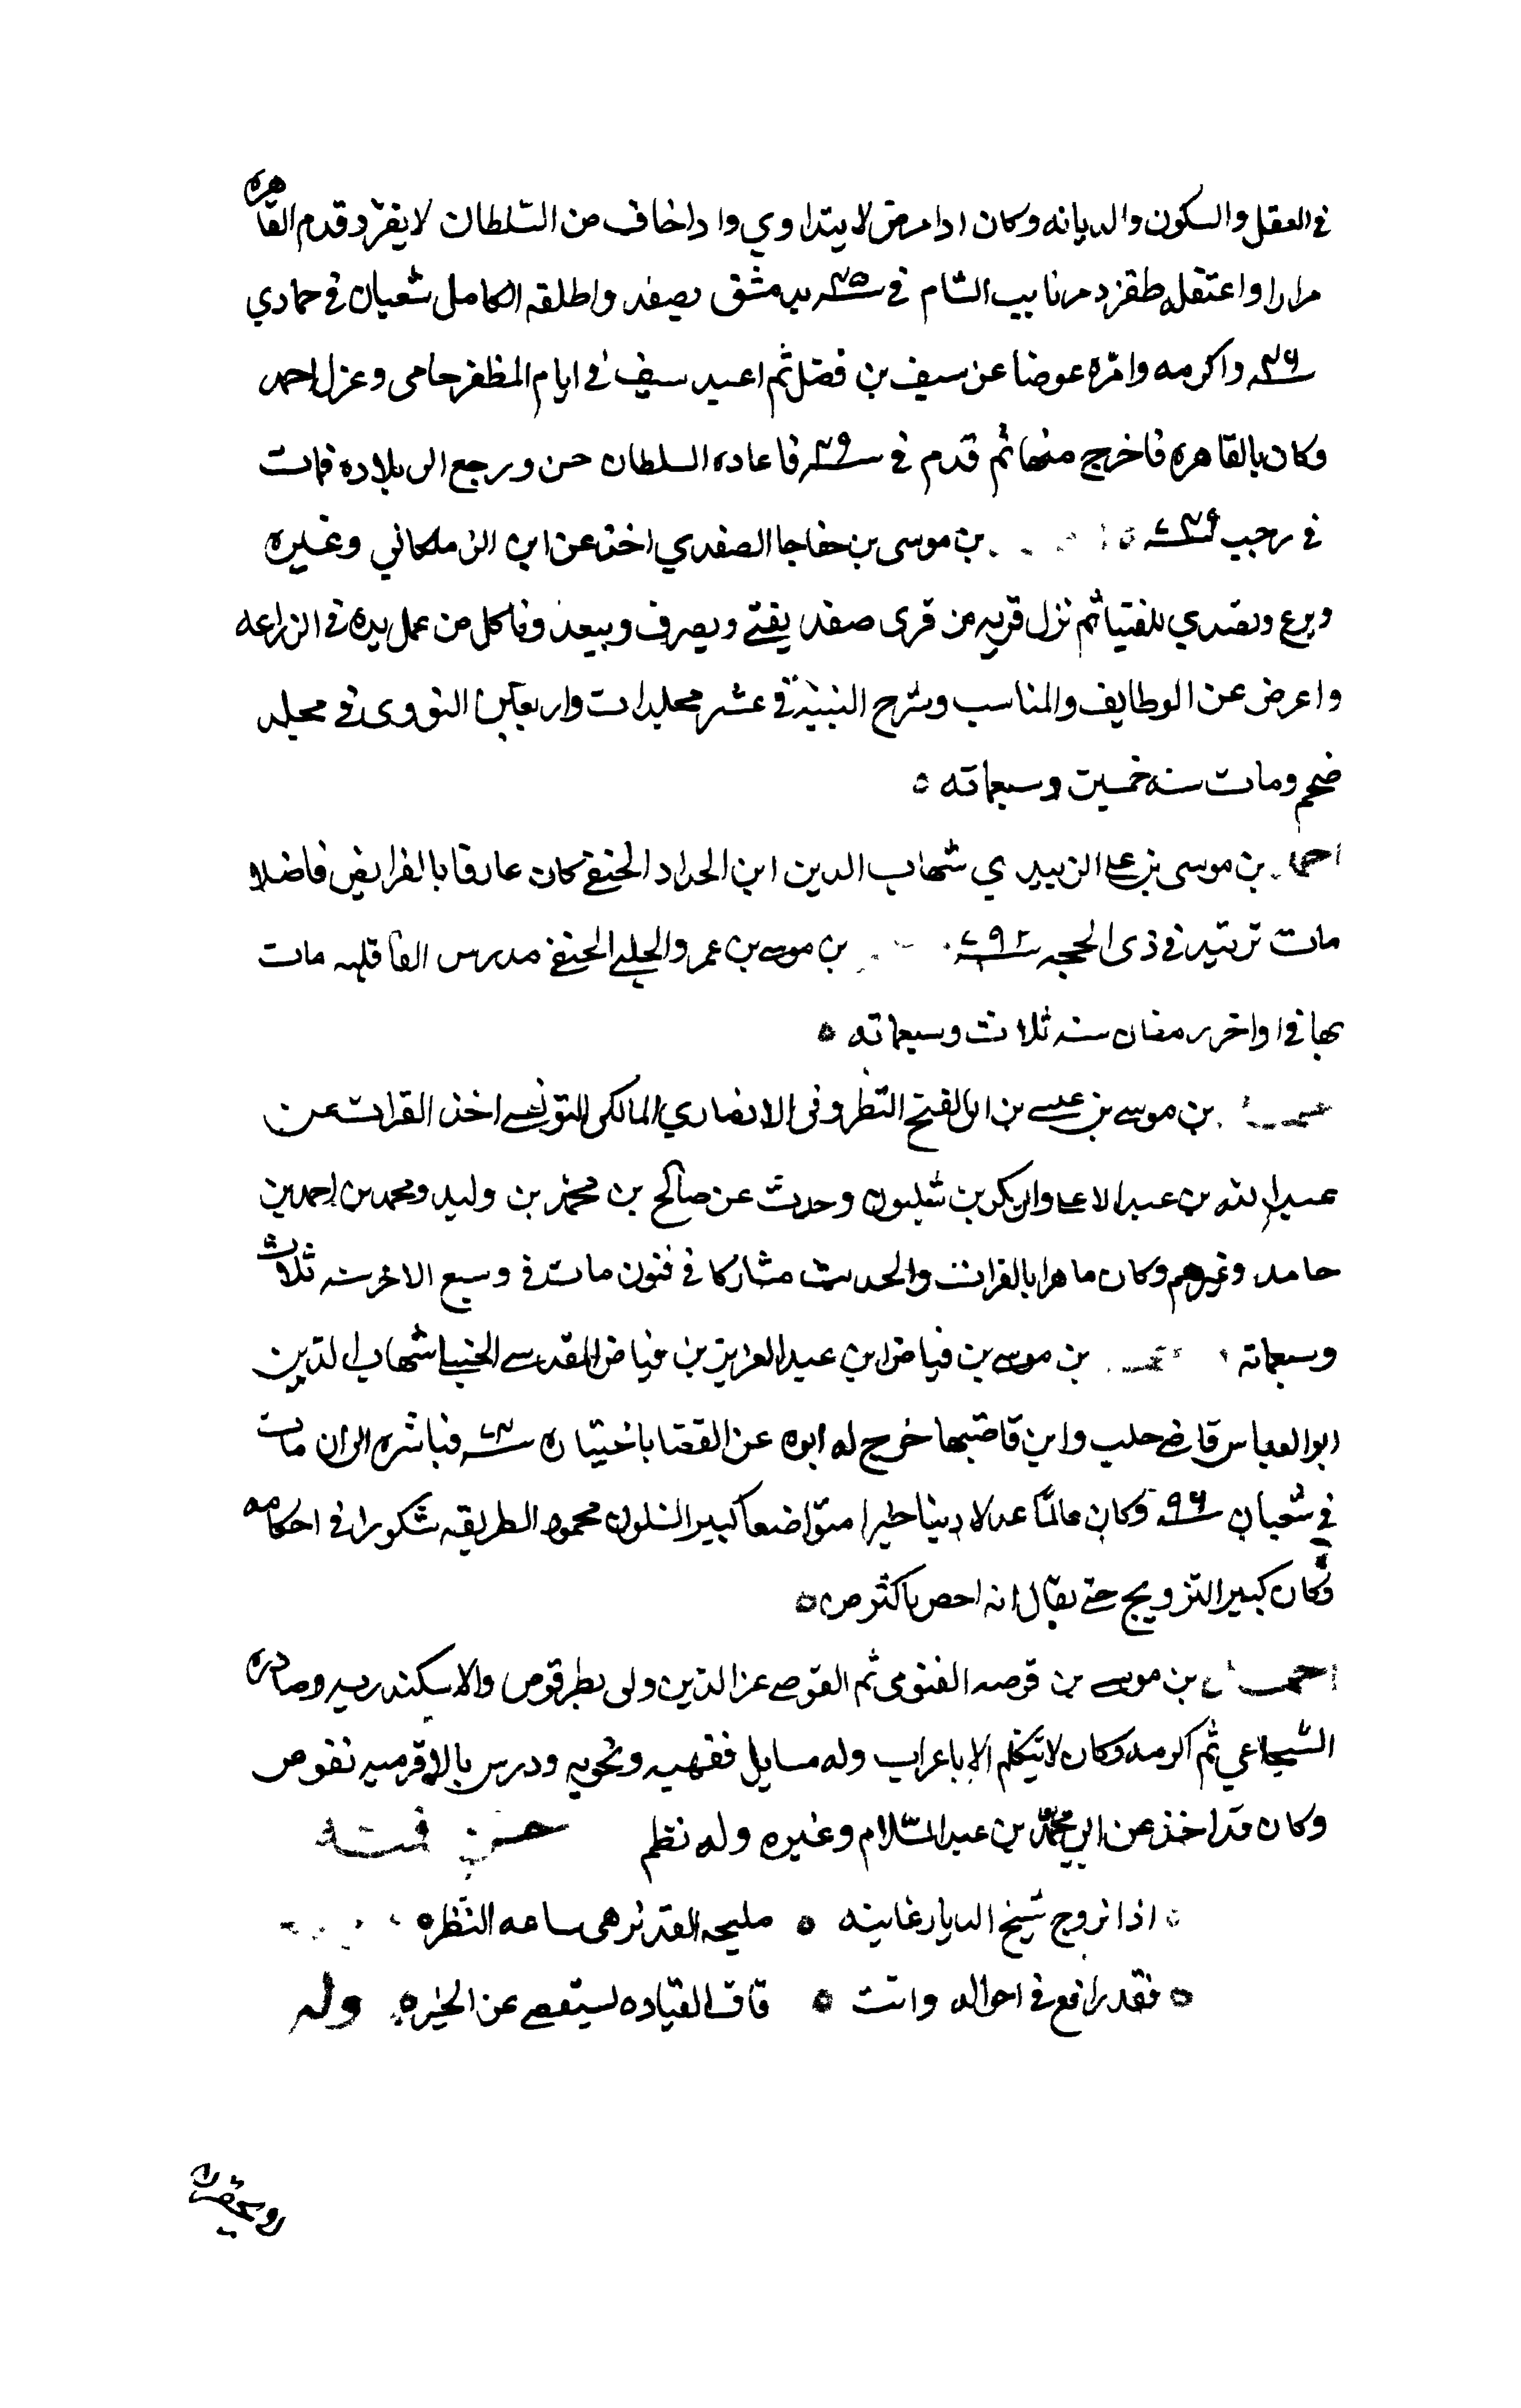 في العقل والسكون والديانه وكان ادا مرض لا يتداوي وا داخاف من السلطان لا يفر وقدم القاهره
مرارا واعتقله طقزدمر نايب الشام في سنه ٤٥ بدمشق بصفد واطلقه الكامل شعبان في حمادي
سنه ٤٦ واكرمه وامره عوضا عن سيف بن فضل ثم اعيد سيف في ايام المظفر حاجي وعزل احمد
وكان بالقاهره فاخرج منها ثم قدم في سنه ٤٩ فاعاده السلطان حسن ورجع الى بلاده فمات
في رجب سنه ٥ بن موسى بن خفاجا الصفدي اخذ عن ابن الزملكاني وغيره
وبرع وتصدي للفتيا ثم نزل قريه من قرى صفد يفتي ويصرف وياكل من عمل يده في الزراعه
واعرض عن الوطايف والمناسب وشرح التنبيه في عشر مجلدات واربعين النووى في مجلد
ضخم ومات سنه خمسين وسبعماته ٥
احمد بن موسى بن علي الزبيدي شهاب الدين ابن الحداد الحنفي كان عارفا بالفرايض فاضلا
مات تربيد في ذى الحجه سنه بن موسى بن عمرو الحلبي الحنفي مدرس مات
بها في اواخر رمضان سنه ثلاث وسبعماته ٥
بن موسى بن عيسى بن ابي الفتح البطروني الانصاري المالكي التونسي اخذ القرات عن
عبد الله بن عبد الاعلى وابي بكر بن شلبون وحدث عن صالح بن محمد بن وليد ومحمد بن احمد بن
حامد وغيرهم وكان ماهرا بالقرات والحديث مشاركا في فنون مات في ربيع الاخر سنه ثلاث
وسبعماته بن موسى بن فياض ابن عبد العزيز بن فياض المقدسي الحنبلي شهاب الدين
ابو العباس قاضي حلب وابن قاضيها خرج له ابوه عن القضا باختياره سنه ٧٤ فباشره الى ان مات
في شعبان سنه ٩٦ وكان عالما عدلا دينا خيرا متواضعا كبير محمود الطريقه شكورا في احكامه
وكان كبير التزويج حتى يقال انه احصن اكثر من ٥
احمد بن موسى بن قرصه الفيومي ثم القوصي عز الدين ولى نظر قوص والاسكندريه وصادره
الشجاعي ثم اكرمه وكان لا يتكلم الا باعراب وله مسايل فقهيه ونحويه ودرس بالافرميه بقوص
وكان قد اخذ عن ابي محمد بن عبد السلام وغيره وله نظم حسن فمنه
اذا تزوج شيخ الدار غانيه ٥ مليحه القد تزهى ساعه النظره
٥ فقد رافع في احواله واتت ٥ قاف القياده تستقصي عن الخبره وله